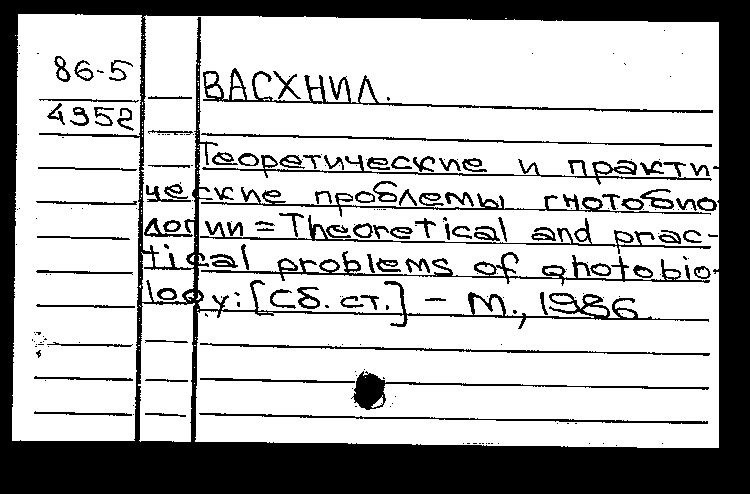 86-5
ВАСХНИЛ.
4952
Теоретические и практи-
ческие проблемы гнотобио
логии = Theoretical and prac-
tical problems of qhotobio-
logy: [Сб. ст.] – М., 1986